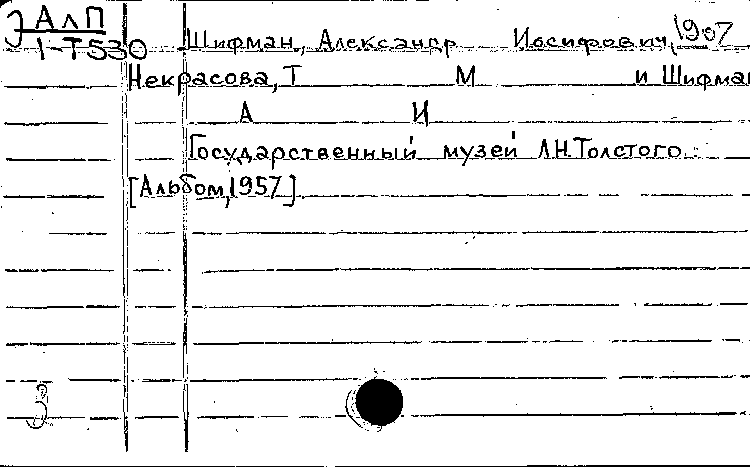 АлП
1-Т530 Шифман, Александр Иосифович, 1907
Некрасова, Т М и Шифман
А И
Государственный музей Л.Н.Толстого.
[Альбом, 1957]
3